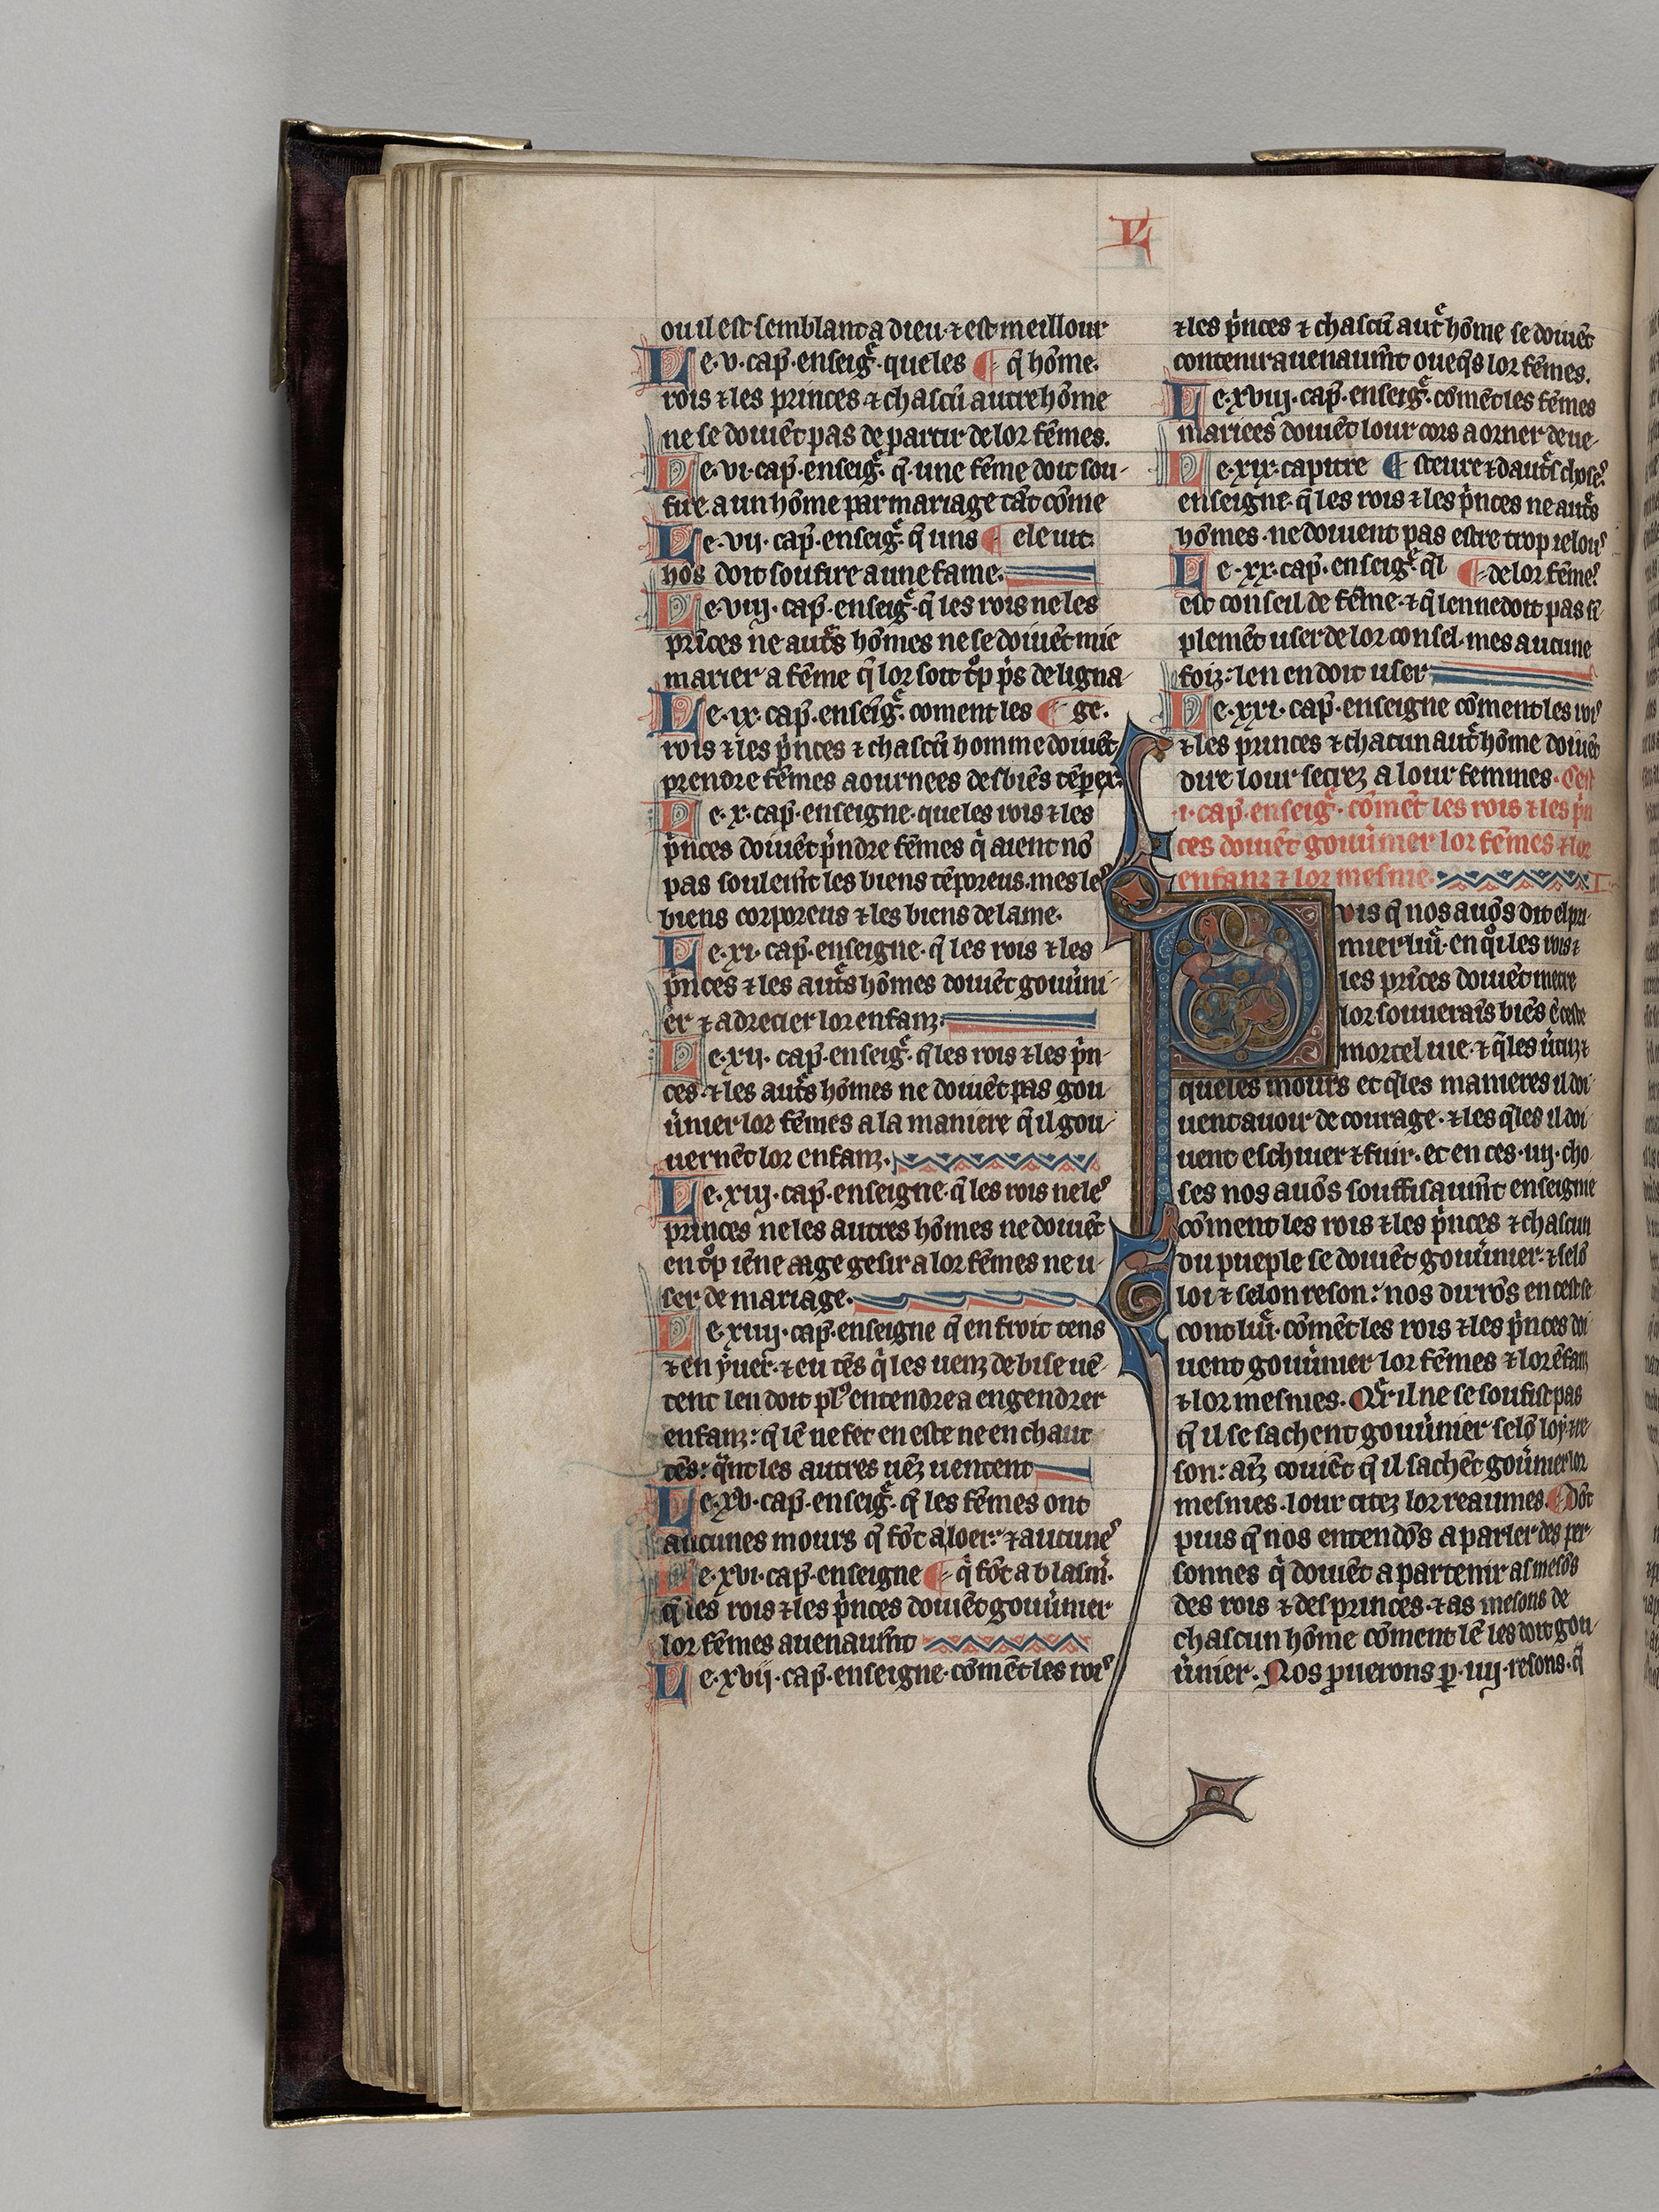 L
ou il est semblant a dieu· ⁊ est meillour
Le·v·cap̃·enseig̃·que les ¶ q̃ hõme·
rois ⁊ les princes ⁊ chascũ autre hõme
ne se doiuẽt pas departir de lor fẽmes.
Le·vi·cap̃·enseig̃· q̃·une fẽme doit sou-
fire a un hõme par mariage tãt cõme
Le·vij·cap̃·enseig̃· q̃ uns ¶ ele uit·
hõs doit soufire a une fame·
Le·viij·cap̃·enseig̃·q̃ les rois ne les
prĩces ne aut̃s hõmes ne se doiuẽt mie
marier a fẽme q̃ lor soit t°p p̃s de ligna-
Le·ix·cap̃·enseig̃·coment les ¶ ge·
rois ⁊ les p̃nces ⁊ chascũ homme doiuẽt
prendre fẽmes aournees des biẽs tẽper·
Le·x·cap̃·enseigne·que les rois ⁊ les
p̃nces doiuẽt p̃ndre fẽmes q̃ aient nõ
pas soulem̃t les biens tẽporeus·mes les
biens corporeus ⁊ les biens de lame·
Le·xi·cap̃·enseigne·q̃ les rois ⁊ les
p̃nces ⁊ les aut̃s hõmes doiuẽt gouũni-
er ⁊ adrecier lor enfanz·
Le·xij·cap̃·enseig̃·q̃ les rois ⁊ les p̃n-
ces ⁊ les aut̃s hõmes ne doiuẽt pas gou-
ũnier lor fẽmes a la maniere q̃ il gou-
uernẽt lor enfanz·
Le·xiij·cap̃·enseigne·q̃ les rois ne les
princes ne les autres hõmes ne doiuẽt
en t°p iẽne aage gesir a lor fẽmes ne u-
ser de mariage·
Le·xiiij·cap̃·enseigne q̃ en froit tens
⁊ en yũer·⁊ eu tẽs q̃ les uenz de bise uẽ-
tent len doit plꝰ entendre a engendrer
enfanz: q̃ lẽ ne fet en este ne en chaut
tẽs: q̃nt les autres uẽz uentent
Le·xv·cap̃·enseig̃· q̃ les fẽmes ont
aucunes mours q̃ fõt a loer: ⁊ aucunes
Le·xvi·cap̃·enseigne ¶ q̃ fõt a blasm̃·
q̃ les rois ⁊ les p̃nces doiuẽt gouũnier
lor fẽmes auenaum̃t
Le·xvij·cap̃·enseigne·comẽt les rois
⁊ les p̃nces ⁊ chascũ aut̃ hõme se doiuẽt
contenir auenaum̃t oueq̃s lor fẽmes.
Le·xviij·cap̃·enseig̃·cõmẽt les fẽmes
mariees doiuẽt lour cors aorner de ue-
Le·xix·capitre ¶ steure ⁊ daut̃s choses
enseigne·q̃ les rois ⁊ les p̃nces ne aut̃s
hõmes·ne doiuent pas estre trop ielous
Le·xx·cap̃·enseig̃ q̃l ¶ de lor fẽmes
est conseil de fẽme·⁊ q̃ len ne doit pas sĩ-
plemẽt user de lor consel·mes aucune
foiz: len en doit user
Le·xxi·cap̃·enseigne cõment les rois
⁊ les princes ⁊ chacun aut̃ hõme doiuẽt
dire lour secrez a lour femmes· Cest
·i·cap̃·enseig̃·cõmẽt les rois ⁊ les p̃n
ces doiuẽt gouũnier lor fẽmes ⁊ lor
enfanz ⁊ lor mesnie·
Puis q̃ nos auõs dit el pri-
mier liũ·en q°i les rois ⁊
les prĩces doiuẽt metre
lor souuerais biẽs ẽ ceste
mortel uie·⁊ q̃les ũtuz ⁊
queles mours et q̃les manieres il doi-
uent auoir de courage·⁊ les q̃les il doi-
uent eschiuer ⁊ fuir·et en ces·iiij·cho-
ses nos auõs souffisaum̃t enseigne
cõment les rois ⁊ les p̃nces ⁊ chascun
du pueple se doiuẽt gouũnier·⁊ selõ
loi ⁊ selon reson: nos dirrõs en cest se-
cont liũ·cõmẽt les rois ⁊ les p̃nces doi-
uent gouũnier lor fẽmes ⁊ lor ẽfanz
⁊ lor mesnies· Q̃r il ne se soufist pas
q̃ il se sachent gouũnier selõ loy ⁊ re-
son: aĩz couiẽt q̃ il sachẽt goũnier lor
mesnies·lour citez lor reaumes· ¶ Dõt
puis q̃ nos entendõs a parler des per-
sonnes q̃ doiuẽt apartenir as mesõs
des rois ⁊ des princes·⁊ as mesons de
chascun hõme cõment lẽ les doit gou-
ũnier· Nos ꝓuerons ꝑ·iiij·resons·q̃